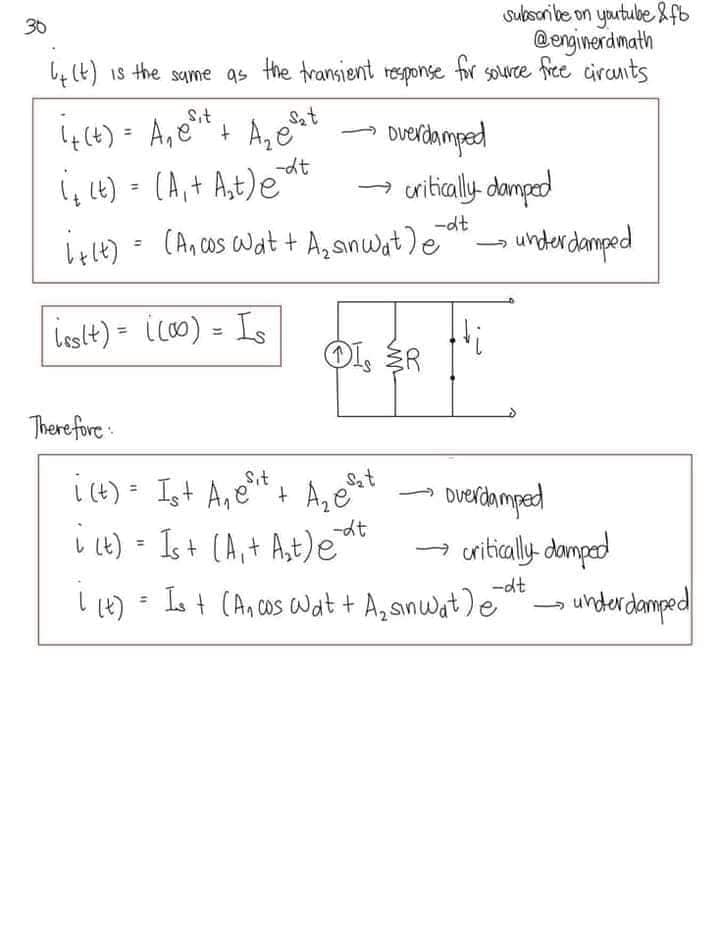 30
subscribe on youtube & fb
@enginerdmath
i_t(t) is the same as the transient response for source free circuits
i_t(t) = A₁e^(s₁t) + A₂e^(s₂t) → overdamped
i_t(t) = (A₁ + A₂t)e^(-αt) → critically-damped
i_t(t) = (A₁ cos ω_d t + A₂ sin ω_d t)e^(-αt) → underdamped
i_ss(t) = i(∞) = I_s
↑ I_s R ↓ i
Therefore:
i(t) = I_s + A₁e^(s₁t) + A₂e^(s₂t) → overdamped
i(t) = I_s + (A₁ + A₂t)e^(-αt) → critically-damped
i(t) = I_s + (A₁ cos ω_d t + A₂ sin ω_d t)e^(-αt) → underdamped